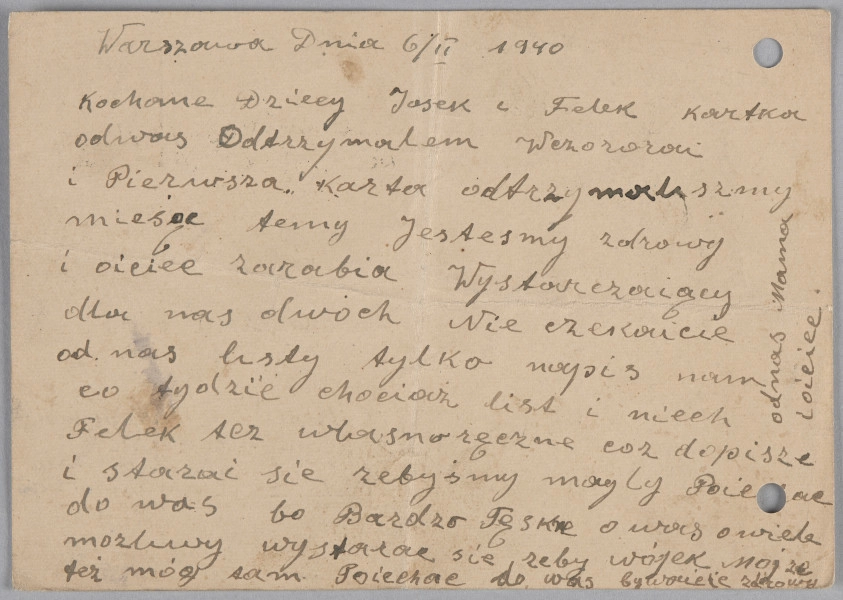 Warszawa Dnia 6/II 1940
Kochane Dziecy Josek i Felek kartka
odwas Odtrzymalem Wczororaj
i Pierwsza. Karta odtrzymaliszmy
mieśąc temy Jestesmy zdrowy
i oiciec zarabia Wystarczaiący
dla nas dwoch Nie czekaicie
od. nas listy tylko napis nam
co tydzïe chociaż list i niech
Felek tez własnoręczne coz dopisze
i starai sie zebyśmy mogly Poiechac
do was bo Bardzo Tęskne o was owiele
mozluwy wystarac sie zeby wójek Mojże
też móg tam Poiechac do was bywaicie zdrowy
odnas Mama
i oiciec.